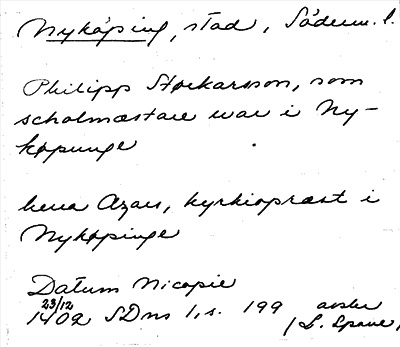 Nyköping, stad, Söderm. l.
Philipp Størkarsson, som
scholmæstare war i Ny-
køpunge
hena Azars, kyrkiopræst i
Nykøpinge
Datum Nicopie
23/12
1402 SDns 1, s. 199